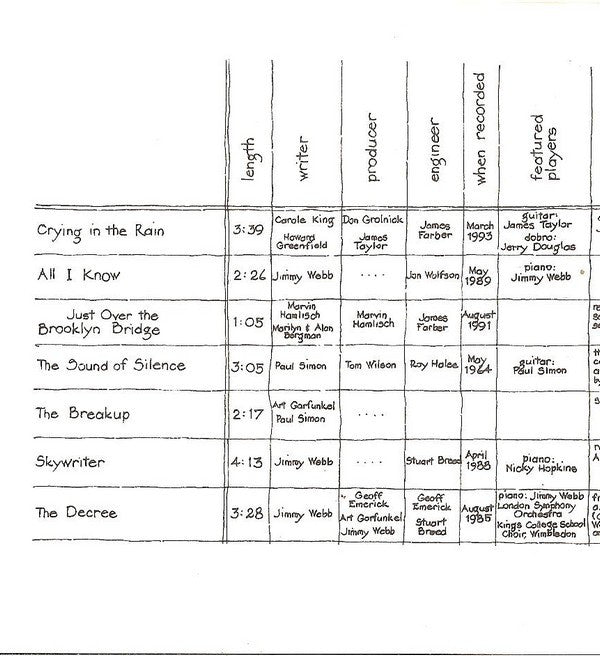 length writer producer engineer when recorded featured players
Crying in the Rain 3:39 Carole King Howard Greenfield Don Grolnick James Taylor James Farber March 1993 guitar: James Taylor dobro: Jerry Douglas
All I Know 2:26 Jimmy Webb .... Jon Wolfson May 1989 piano: Jimmy Webb
Just Over the Brooklyn Bridge 1:05 Marvin Hamlisch Marilyn & Alan Bergman Marvin Hamlisch James Farber August 1991
The Sound of Silence 3:05 Paul Simon Tom Wilson Roy Halee May 1964 guitar: Paul Simon
The Breakup 2:17 Art Garfunkel Paul Simon ....
Skywriter 4:13 Jimmy Webb .... Stuart Breed April 1988 piano: Nicky Hopkins
The Decree 3:28 Jimmy Webb Geoff Emerick Art Garfunkel Jimmy Webb Geoff Emerick Stuart Breed August 1985 piano: Jimmy Webb London Symphony Orchestra Kings College School Choir, Wimbledon